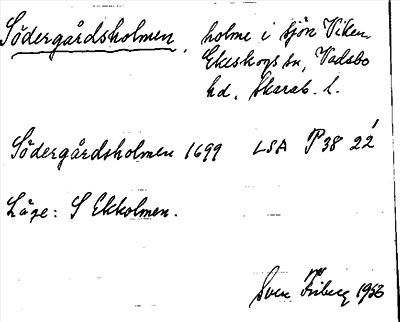 Södergårdsholmen, holme i sjön Viken
Ekeskogs sn, Vadsbo
hd, Skarab. l.
Södergårdsholmen 1699 LSA P 38 22¹
Läge: S Ekholmen.
Sven Friberg 1953